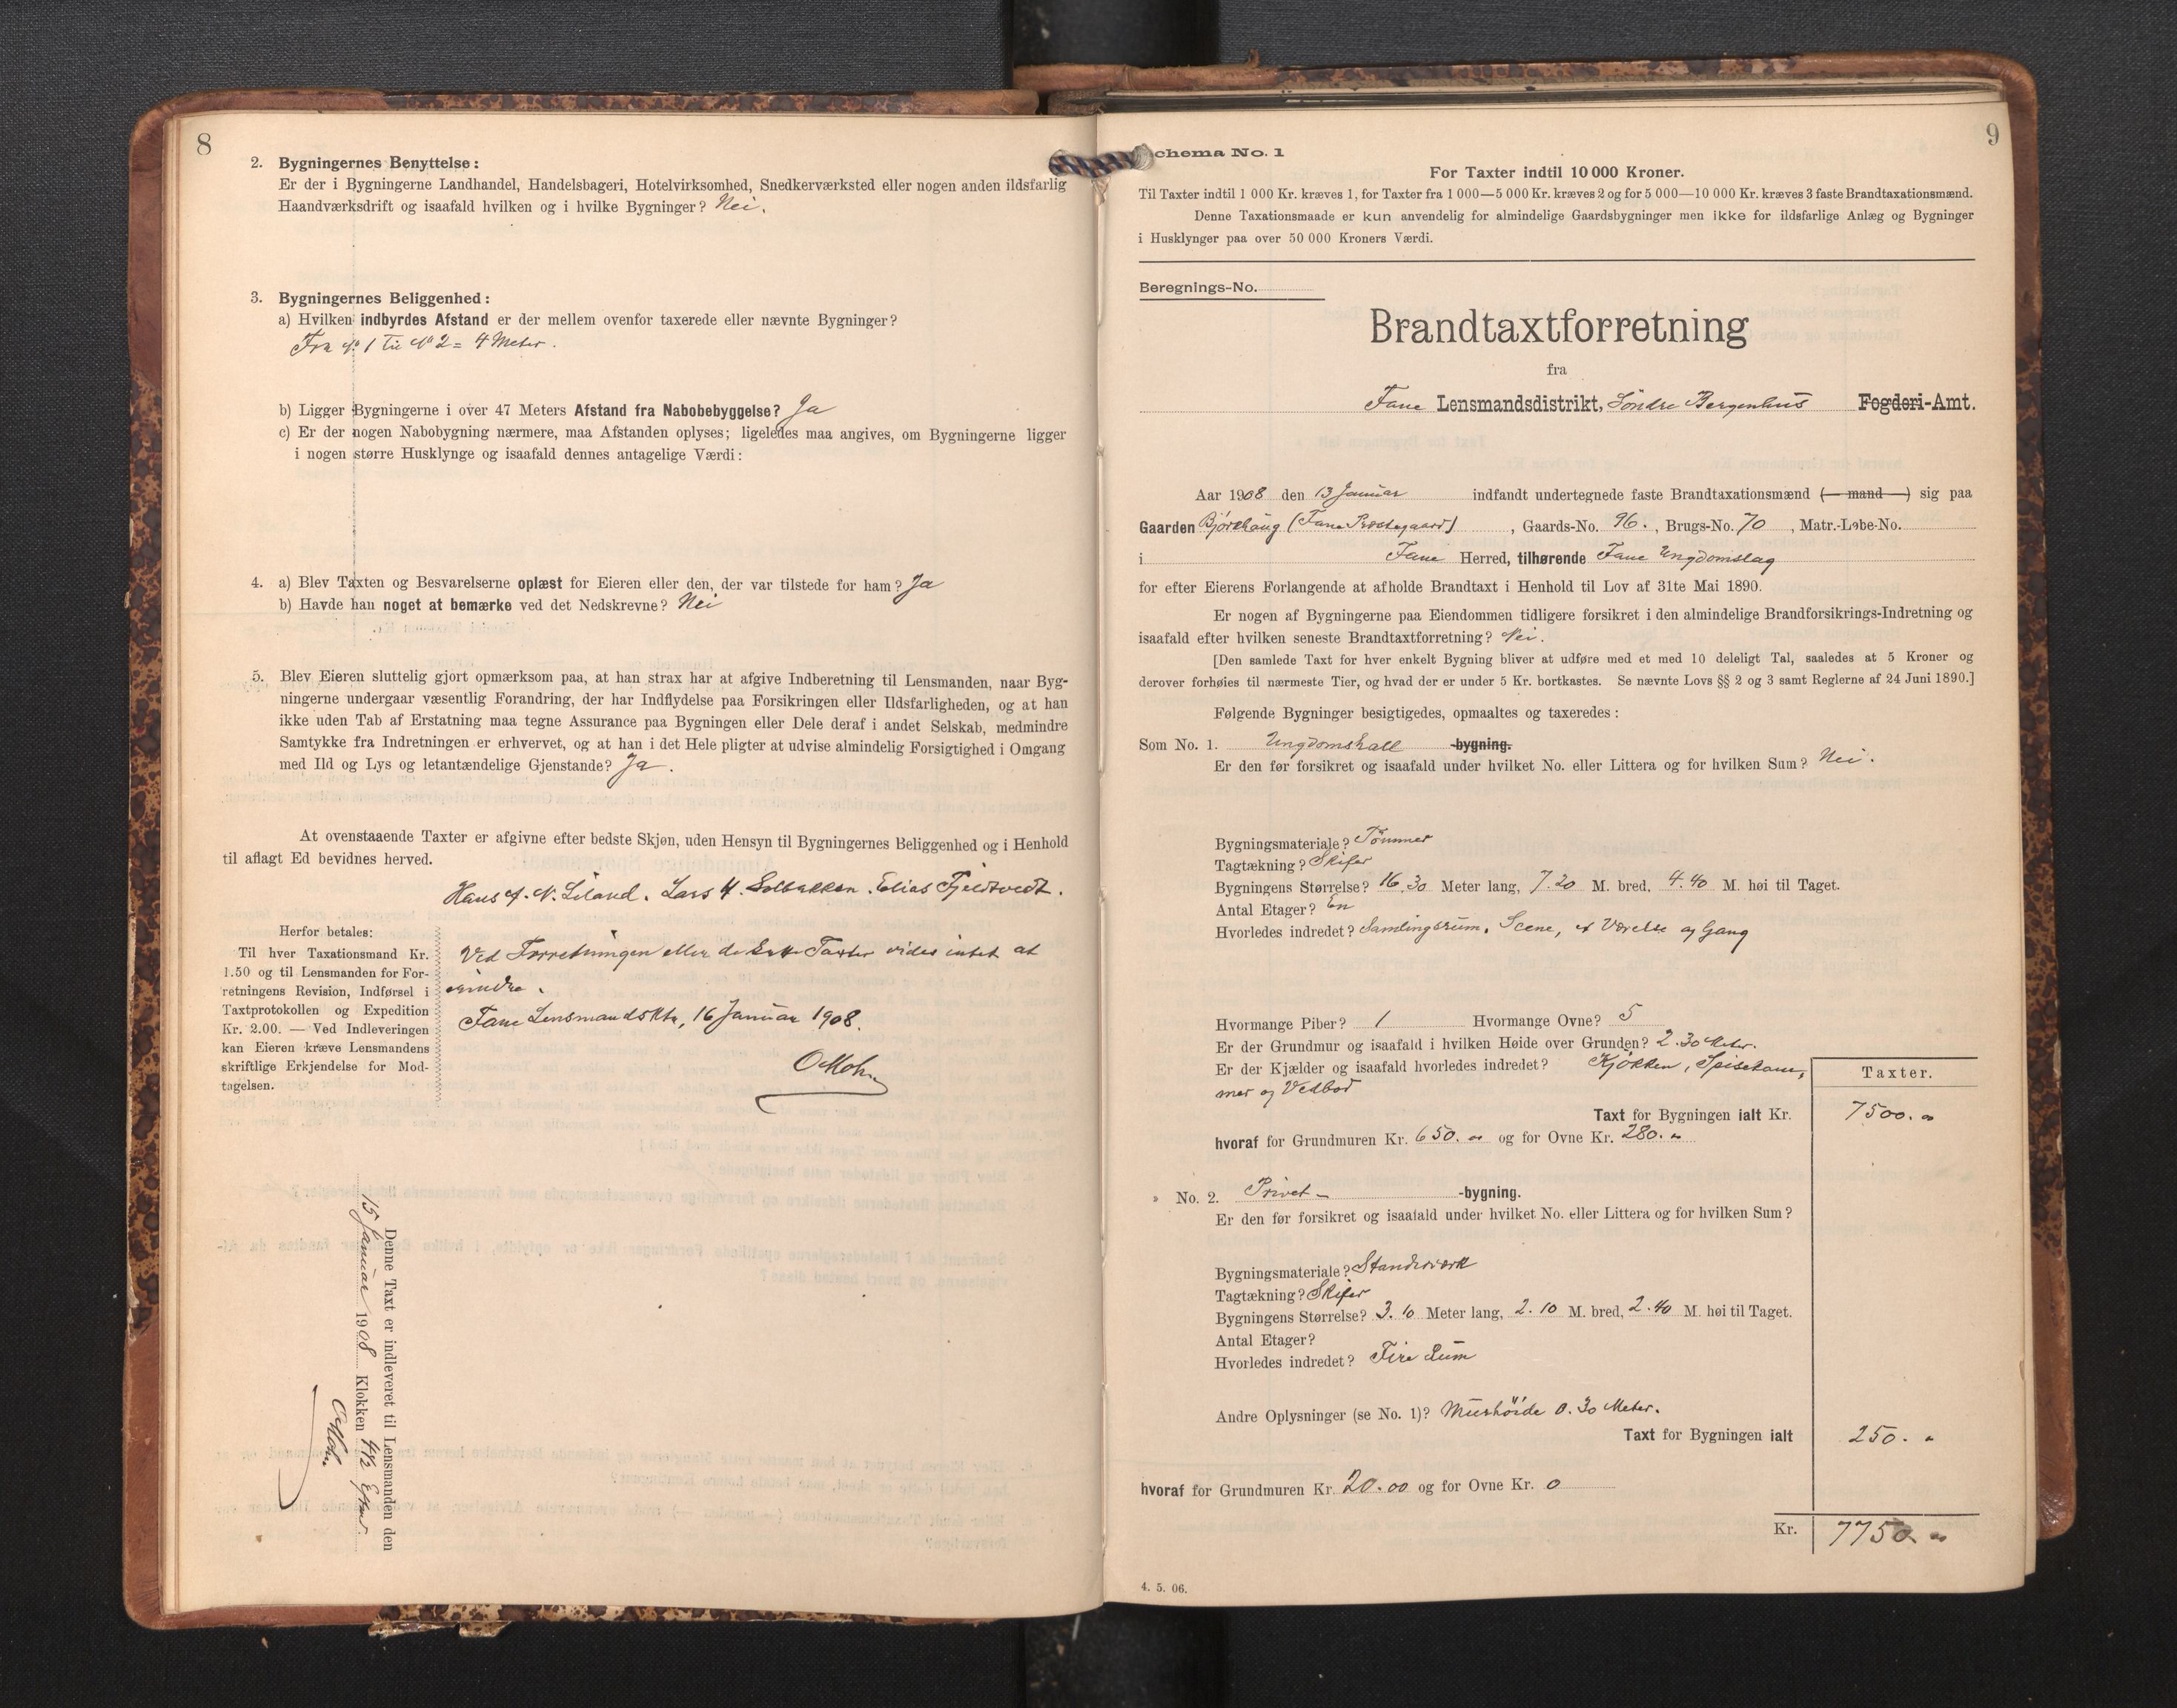 8
2. Bygningernes Benyttelse:
Er der i Bygningerne Landhandel, Handelsbageri, Hotelvirksomhed, Snedkerværksted eller nogen anden ildsfarlig
Haandværksdrift og isaafald hvilken og i hvilke Bygninger? Nei.
3. Bygningernes Beliggenhed:
a) Hvilken indbyrdes Afstand er der mellem ovenfor taxerede eller nævnte Bygninger?
Fra No 1 til No 2 = 4 Meter.
b) Ligger Bygningerne i over 47 Meters Afstand fra Nabobebyggelse? Ja
c) Er der nogen Nabobygning nærmere, maa Afstanden oplyses; ligeledes maa angives, om Bygningerne ligger
i nogen større Husklynge og isaafald dennes antagelige Værdi:
4. a) Blev Taxten og Besvarelserne oplæst for Eieren eller den, der var tilstede for ham? Ja
b) Havde han noget at bemærke ved det Nedskrevne? Nei
5. Blev Eieren sluttelig gjort opmærksom paa, at han strax har at afgive Indberetning til Lensmanden, naar Byg-
ningerne undergaar væsentlig Forandring, der har Indflydelse paa Forsikringen eller Ildsfarligheden, og at han
ikke uden Tab af Erstatning maa tegne Assurance paa Bygningen eller Dele deraf i andet Selskab, medmindre
Samtykke fra Indretningen er erhvervet, og at han i det Hele pligter at udvise almindelig Forsigtighed i Omgang
med Ild og Lys og letantændelige Gjenstande? Ja.
At ovenstaaende Taxter er afgivne efter bedste Skjøn, uden Hensyn til Bygningernes Beliggenhed og i Henhold
til aflagt Ed bevidnes herved.
Hans A. N. Liland. Lars H. Solbakken. Elias Fjeldtvedt.
Herfor betales:
Til hver Taxationsmand Kr.
1.50 og til Lensmanden for For-
retningens Revision, Indførsel i
Taxtprotokollen og Expedition
Kr. 2.00. — Ved Indleveringen
kan Eieren kræve Lensmandens
skriftlige Erkjendelse for Mod-
tagelsen.
Ved Forretningen eller de satte Taxter vides intet at
erindre.
Fane Lensmandsktr, 16 Januar 1908.
O Mohn
Denne Taxt er indleveret til Lensmanden den
15 Januar 1908 Klokken 4 1/2 Efterm.
O Mohn.
9
Schema No. 1
For Taxter indtil 10 000 Kroner.
Til Taxter indtil 1 000 Kr. kræves 1, for Taxter fra 1 000—5 000 Kr. kræves 2 og for 5 000—10 000 Kr. kræves 3 faste Brandtaxationsmænd.
Denne Taxationsmaade er kun anvendelig for almindelige Gaardsbygninger men ikke for ildsfarlige Anlæg og Bygninger
i Husklynger paa over 50 000 Kroners Værdi.
Beregnings-No.
Brandtaxtforretning
fra
Fane Lensmandsdistrikt, Söndre Bergenhus Fogderi-Amt.
Aar 1908 den 13 Januar indfandt undertegnede faste Brandtaxationsmænd (— mand —) sig paa
Gaarden Bjórkhaug (Fane Prestegaard), Gaards-No. 96., Brugs-No. 70, Matr.-Løbe-No.
i Fane Herred, tilhørende Fane Ungdomslag
for efter Eierens Forlangende at afholde Brandtaxt i Henhold til Lov af 31te Mai 1890.
Er nogen af Bygningerne paa Eiendommen tidligere forsikret i den almindelige Brandforsikrings-Indretning og
isaafald efter hvilken seneste Brandtaxtforretning? Nei.
[Den samlede Taxt for hver enkelt Bygning bliver at udføre med et med 10 deleligt Tal, saaledes at 5 Kroner og
derover forhøies til nærmeste Tier, og hvad der er under 5 Kr. bortkastes. Se nævnte Lovs §§ 2 og 3 samt Reglerne af 24 Juni 1890.]
Følgende Bygninger besigtigedes, opmaaltes og taxeredes:
Som No. 1. Ungdomshall -bygning.
Er den før forsikret og isaafald under hvilket No. eller Littera og for hvilken Sum? Nei.
Bygningsmateriale? Tömmer
Tagtækning? Skifer
Bygningens Størrelse? 16.30 Meter lang, 7.20 M. bred, 4.40 M. høi til Taget.
Antal Etager? En
Hvorledes indredet? Samlingsrum, Scene, et Værelse og Gang
Hvormange Piber? 1 Hvormange Ovne? 5
Er der Grundmur og isaafald i hvilken Høide over Grunden? 2.30 Meter.
Er der Kjælder og isaafald hvorledes indredet? Kjökken, Spisekam,
mer og Vedbod
Taxter.
Taxt for Bygningen ialt Kr. 7500.00
hvoraf for Grundmuren Kr. 650.00 og for Ovne Kr. 280.00
» No. 2. Privet- -bygning.
Er den før forsikret og isaafald under hvilket No. eller Littera og for hvilken Sum?
Bygningsmateriale? Standerværk
Tagtækning? Skifer
Bygningens Størrelse? 3.10 Meter lang, 2.10 M. bred, 2.40 M. høi til Taget.
Antal Etager?
Hvorledes indredet? Fire Rum
Andre Oplysninger (se No. 1)? Murhöide 0.30 Meter.
Taxt for Bygningen ialt 250. "
hvoraf for Grundmuren Kr. 20.00 og for Ovne Kr. 0
Kr. 7750.00
4. 5. 06.